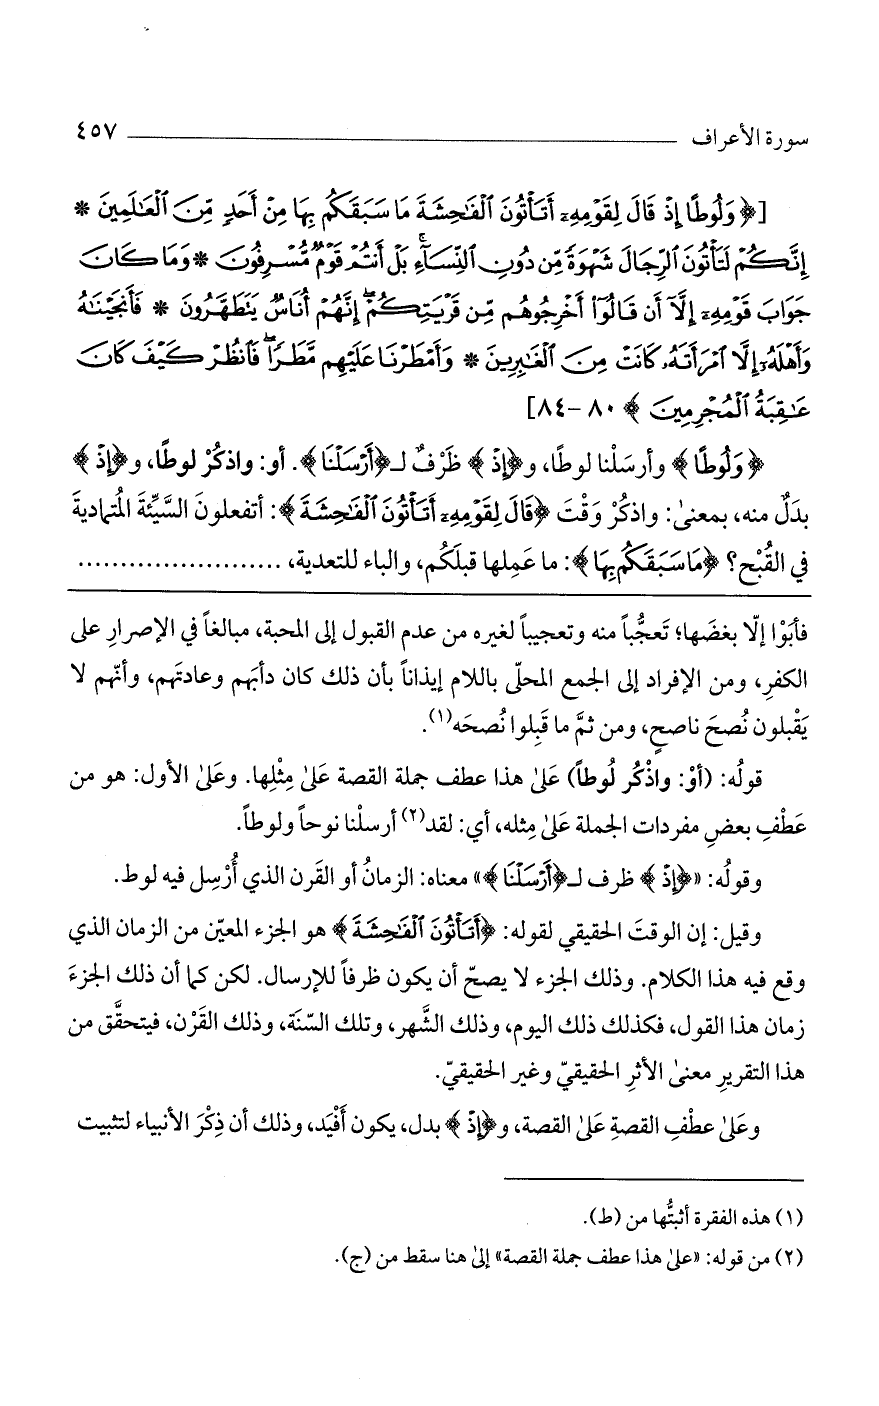 سورة الأعراف ٤٥٧
[﴿وَلُوطًا إِذْ قَالَ لِقَوْمِهِۦٓ أَتَأْتُونَ ٱلْفَـٰحِشَةَ مَا سَبَقَكُم بِهَا مِنْ أَحَدٍ مِّنَ ٱلْعَـٰلَمِينَ *
إِنَّكُمْ لَتَأْتُونَ ٱلرِّجَالَ شَهْوَةً مِّن دُونِ ٱلنِّسَآءِ ۚ بَلْ أَنتُمْ قَوْمٌ مُّسْرِفُونَ * وَمَا كَانَ
جَوَابَ قَوْمِهِۦٓ إِلَّآ أَن قَالُوٓا۟ أَخْرِجُوهُم مِّن قَرْيَتِكُمْ ۖ إِنَّهُمْ أُنَاسٌ يَتَطَهَّرُونَ * فَأَنجَيْنَـٰهُ
وَأَهْلَهُۥٓ إِلَّا ٱمْرَأَتَهُۥ كَانَتْ مِنَ ٱلْغَـٰبِرِينَ * وَأَمْطَرْنَا عَلَيْهِم مَّطَرًا ۖ فَٱنظُرْ كَيْفَ كَانَ
عَـٰقِبَةُ ٱلْمُجْرِمِينَ﴾ ٨٠-٨٤]
﴿وَلُوطًا﴾ وأرسَلْنا لوطًا، و﴿إِذْ﴾ ظَرْفٌ لـ﴿أَرْسَلْنَا﴾. أو: واذكُرْ لوطًا، و﴿إِذْ﴾
بدَلٌ منه، بمعنىٰ: واذكُرْ وَقْتَ ﴿قَالَ لِقَوْمِهِۦٓ أَتَأْتُونَ ٱلْفَـٰحِشَةَ﴾: أتفعلونَ السَّيِّئةَ المُتماديةَ
في القُبْح؟ ﴿مَا سَبَقَكُم بِهَا﴾: ما عَمِلها قبلَكُم، والباء للتعدية، ........................
فأبَوْا إلّا بغضَها؛ تَعجُّباً منه وتعجيباً لغيره من عدم القبول إلى المحبة، مبالغاً في الإصرارِ على
الكفرِ، ومن الإفراد إلى الجمع المحلّى باللام إيذاناً بأن ذلك كان دأبَهم وعادتَهم، وأنّهم لا
يَقْبلون نُصحَ ناصحٍ، ومن ثمَّ ما قَبِلوا نُصحَه(١).
قولُه: (أوْ: واذْكُر لُوطاً) عَلىٰ هذا عطف جملة القصة عَلىٰ مِثْلِها. وعَلىٰ الأول: هو من
عَطْفِ بعضِ مفردات الجملة عَلىٰ مِثله، أي: لقد(٢) أرسلْنا نوحاً ولوطاً.
وقولُه: «﴿إِذْ﴾ ظرف لـ﴿أَرْسَلْنَا﴾» معناه: الزمانُ أو القَرن الذي أُرْسِل فيه لوط.
وقيل: إن الوقتَ الحقيقي لقوله: ﴿أَتَأْتُونَ ٱلْفَـٰحِشَةَ﴾ هو الجزء المعيّن من الزمان الذي
وقع فيه هذا الكلام. وذلك الجزء لا يصحّ أن يكون ظرفاً للإرسال. لكن كما أن ذلك الجزءَ
زمان هذا القول، فكذلك ذلك اليوم، وذلك الشَّهر، وتلك السّنَة، وذلك القَرْن، فيتحقَّق من
هذا التقريرِ معنىٰ الأثرِ الحقيقيّ وغير الحقيقيّ.
وعَلىٰ عطْفِ القصةِ عَلىٰ القصة، و﴿إِذْ﴾ بدل، يكون أَفْيَد، وذلك أن ذِكْرَ الأنبياء لتثبيت
(١) هذه الفقرة أثبتُّها من (ط).
(٢) من قوله: «علىٰ هذا عطف جملة القصة» إلىٰ هنا سقط من (ج).